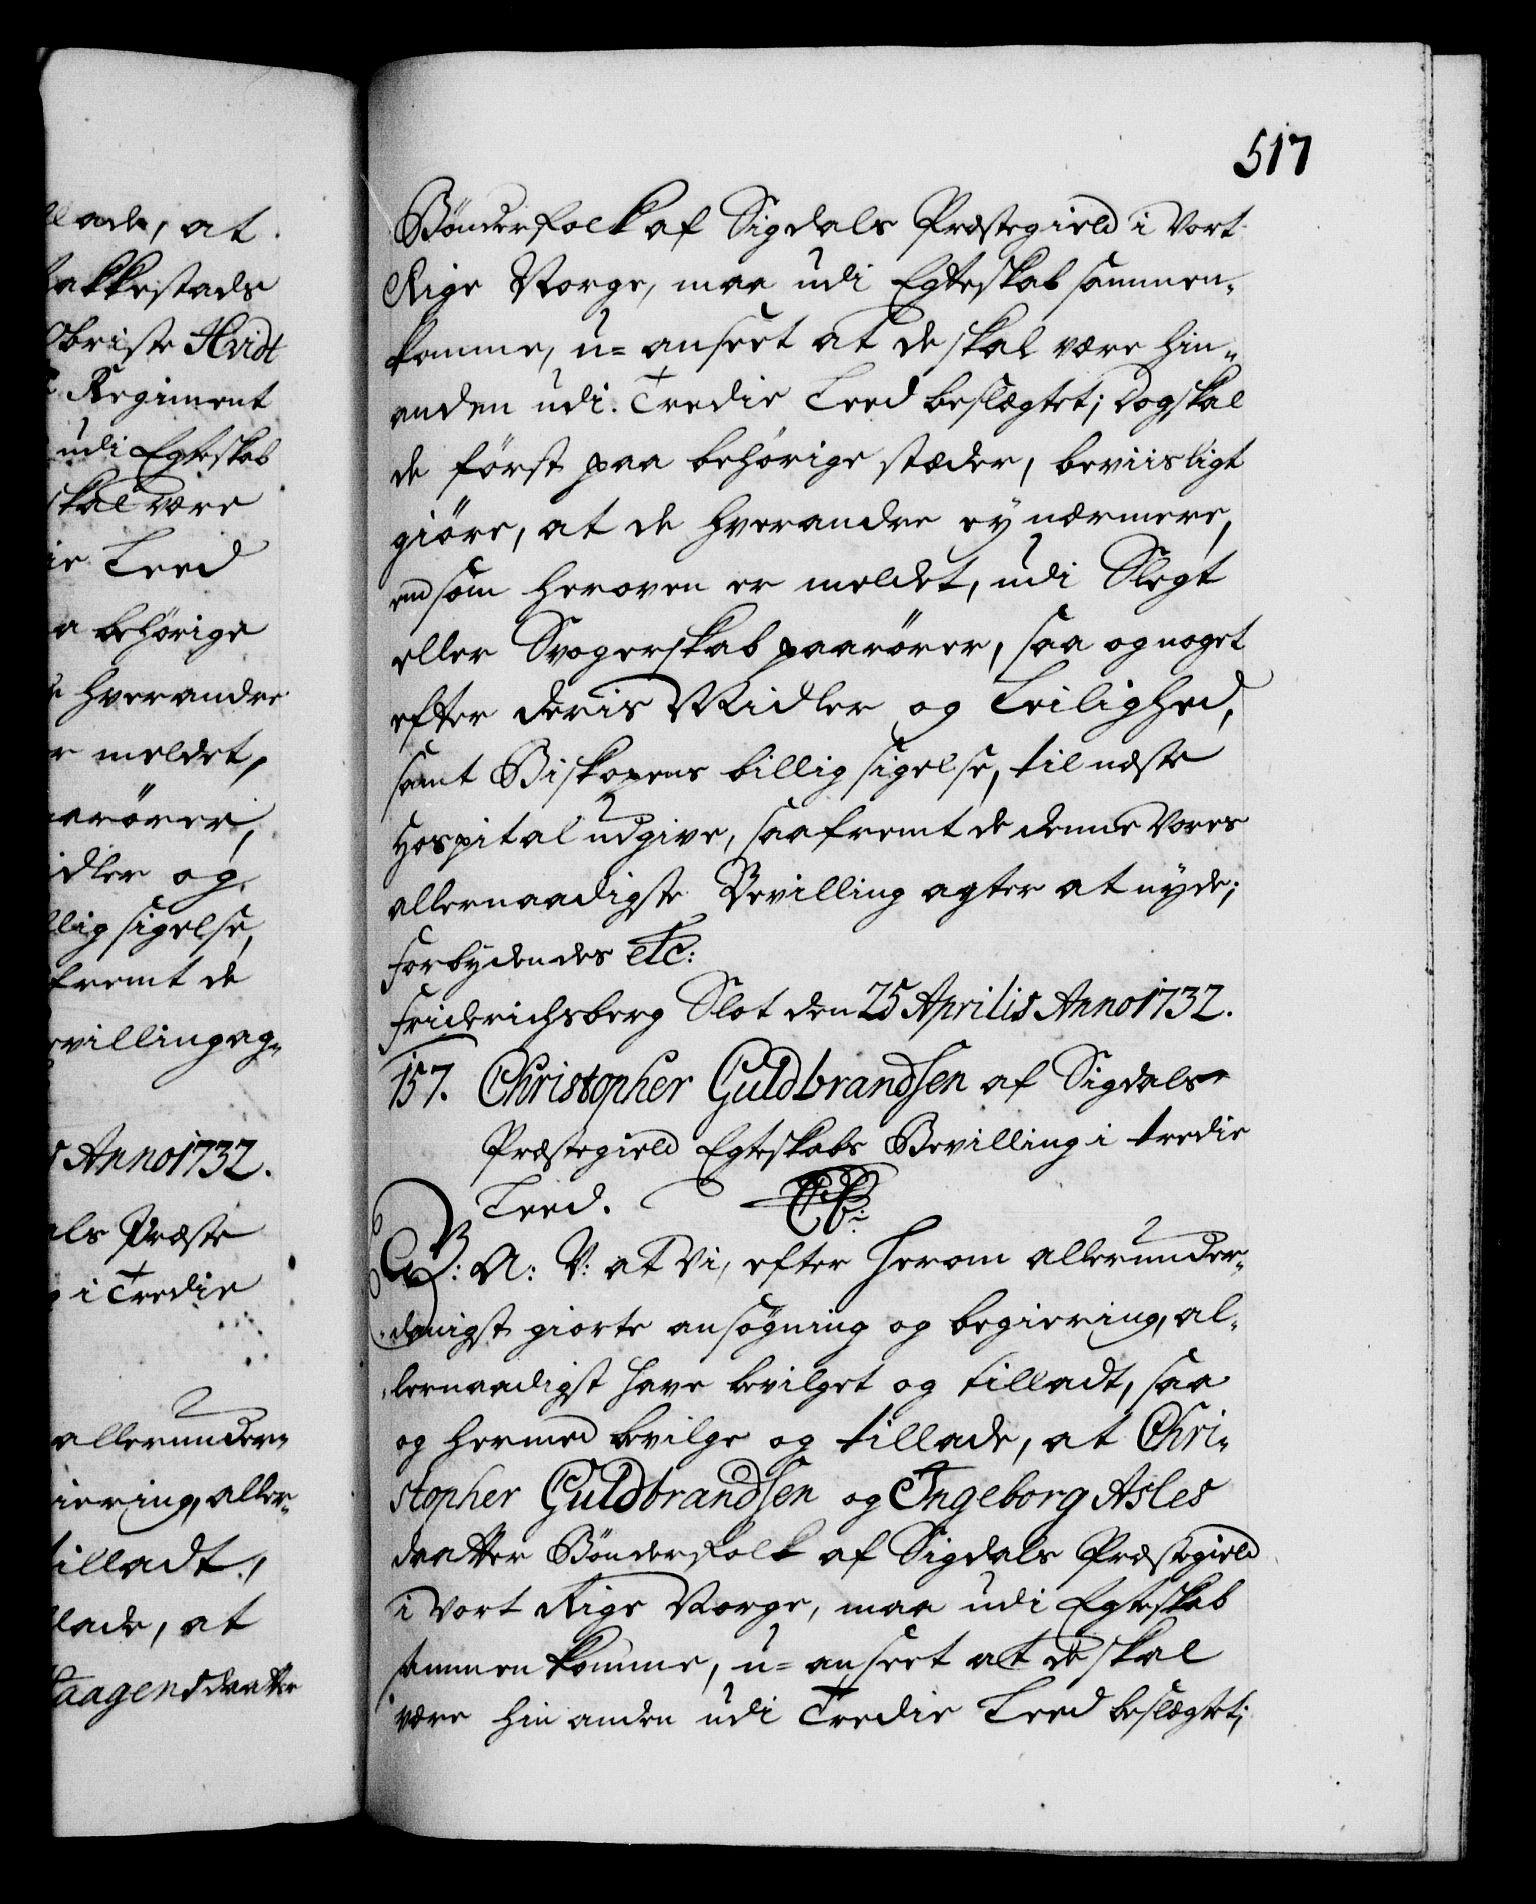 517
Bønderfolk af Sigdals Præstegield i Vort
Rige Norge, maa udi Egteskab sammen-
komme, u=anseet at de skal være hin-
anden udi Tredie Leed beslægtet; Dog skal
de först paa behörige stæder, beviisligt
giöre, at de hverandre ey nærmere,
end som heroven er meldet, udi Slegt
eller Svogerskab paarörer, saa og noget
efter deris Midler og Leilighed,
samt Biskopens billig sigelse, til næste
Hospital udgive, saafremt de denne Vores
allernaadigste Bevilling agter at nyde;
Forbydendes etc:
Friderichsberg Slot den 25 Aprilis Anno 1732.
157. Christopher Guldbrandsen af Sigdals
Præstegield Egteskabs Bevilling i tredie
Leed.
G: A: V: at Vi, efter herom allerunder-
danigst giorte ansögning og begiering, al-
lernaadigst have bevilget og tilladt, saa
og hermed bevilge og tillade, at Chri-
stopher Guldbrandsen og Ingeborg Asles
daatter Bönderfolk af Sigdals Præstegield
i Vort Rige Norge, maa udi Egteskab
sammenkomme, u=anseet at de skal
være hin anden udi Tredie Leed beslægtet;
lade, at
akkestads
Obriste Hvidt
Regiment
udi Egteskab
skal være
ie Leed
a behörige
hverandre
r meldet,
arörer,
idler og
llig sigelse,
fremt de
evilling ag-
s Anno 1732.
als Præste
i Tredie
allerunder-
iering, aller-
tilladt,
lade, at
Haagensdaatter